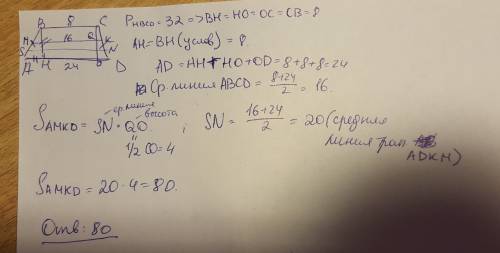 B 8 C
P HBCO = 32 => BH = HO = OC = CB = 8
M 16 Q K
S N
AH = BH (услов) = 8.
A H 24 O D
AD = AH + HO + OD = 8+8+8 = 24
Ср. линия ABCD = 8+24/2 = 16.
ср. линия высота
SAMKD = SN · QO. ; SN = 16+24/2 = 20 (средняя
линия трап.
ADKM)
1/2 CO = 4
SAMKD = 20 · 4 = 80.
Отв: 80